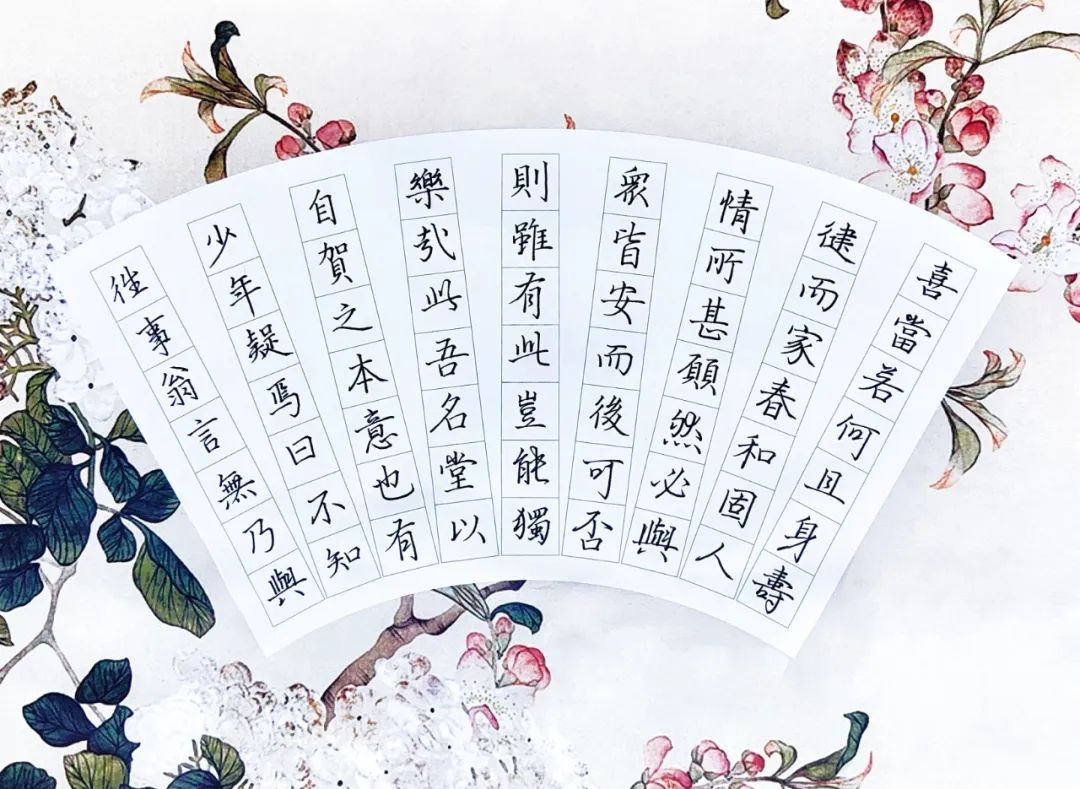 喜當若何且身壽
徤而家春和固人
情所甚願然必與
衆皆安而後可否
則雖有此豈能獨
樂哉此吾名堂以
自賀之本意也有
少年疑焉曰不知
徃事翁言無乃與